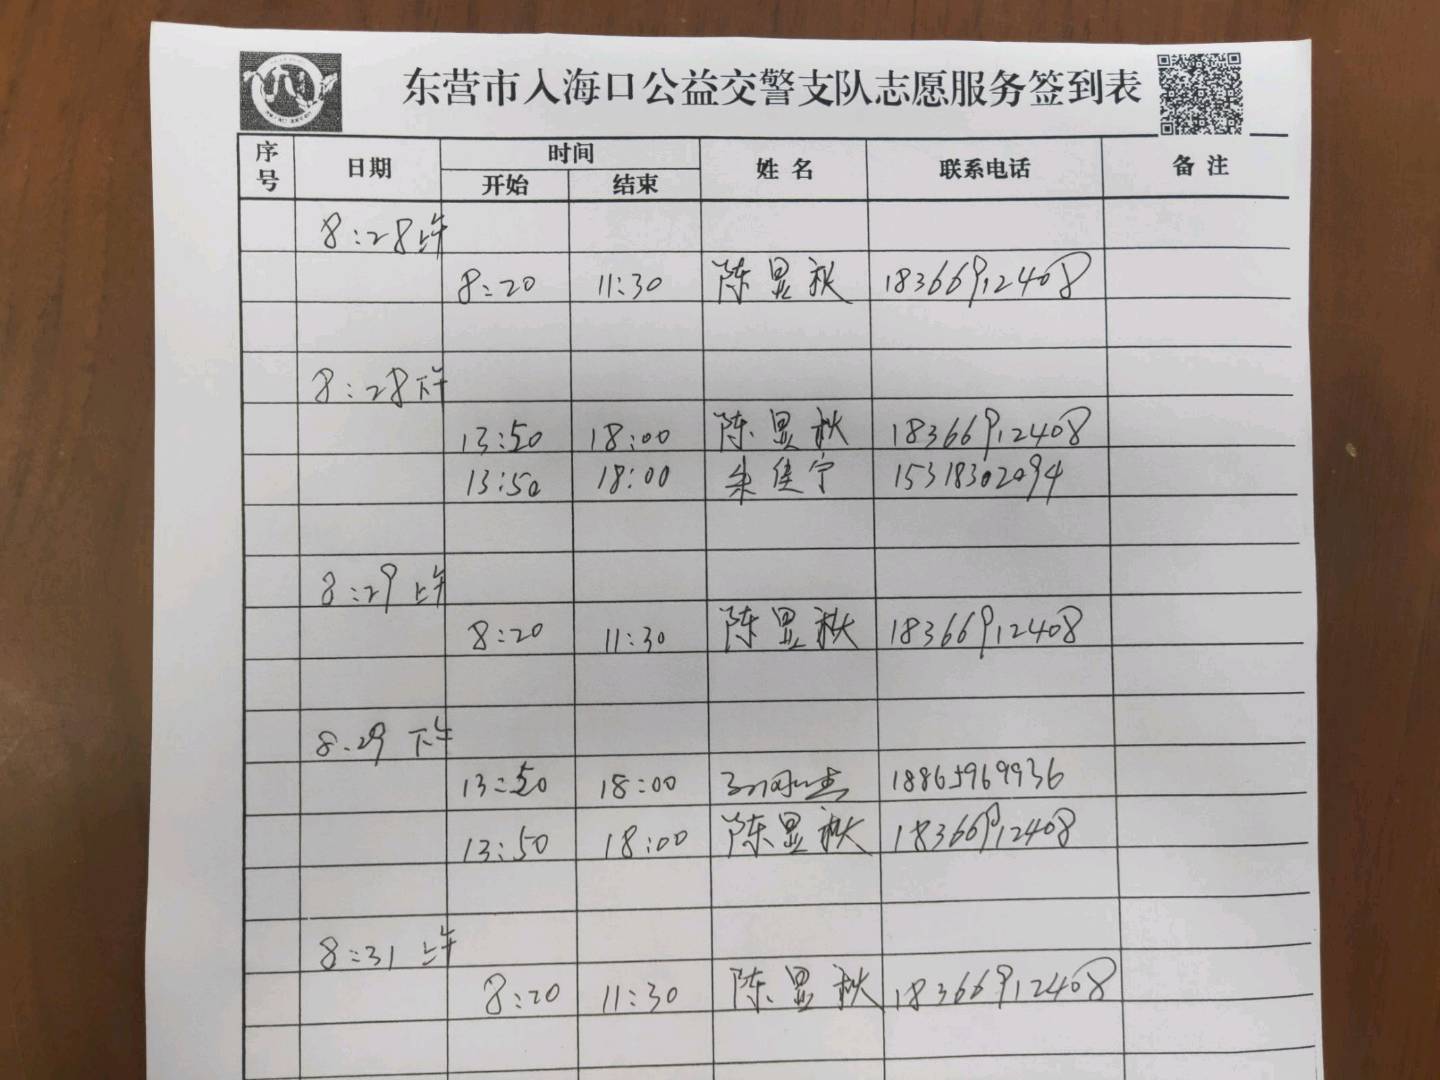 东营市入海口公益交警支队志愿服务签到表
序号 日期 时间 姓 名 联系电话 备 注
开始 结束
8:28上午
8:20 11:30 陈显秋 18366912408
8:28下午
13:50 18:00 陈显秋 18366912408
13:50 18:00 朱佳宁 15318302094
8:29上午
8:20 11:30 陈显秋 18366912408
8.29 下午
13:50 18:00 18865969936
13:50 18:00 陈显秋 18366912408
8:31 上午
8:20 11:30 陈显秋 18366912408